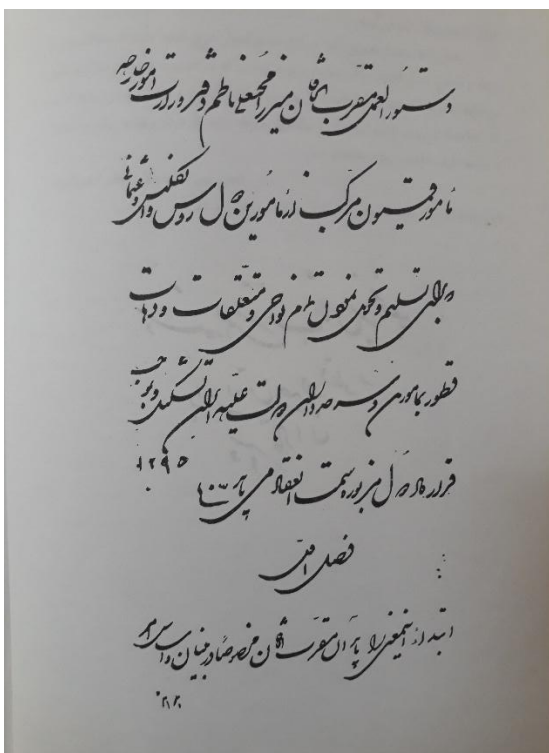 دستورالعمل مقرب الخاقان میرزا محبعلی ناظم دفتر وزارت امور خارجه
مأمور قمیسیون مرکب از مأمورین دول روس و انگلیس و عثمانی
برای تسلیم و تحویل نمودن تمام نواحی و متعلقات و دهات
قطور بمأمورین و سرحدداران دولت علیه ایران تشکیل و بموجب
قرارداد دول مزبوره سمت انعقاد می یابد ۱۲۹۵
فصل اول
ابتدا از اینمعنی را باید آن مقرب الخاقان